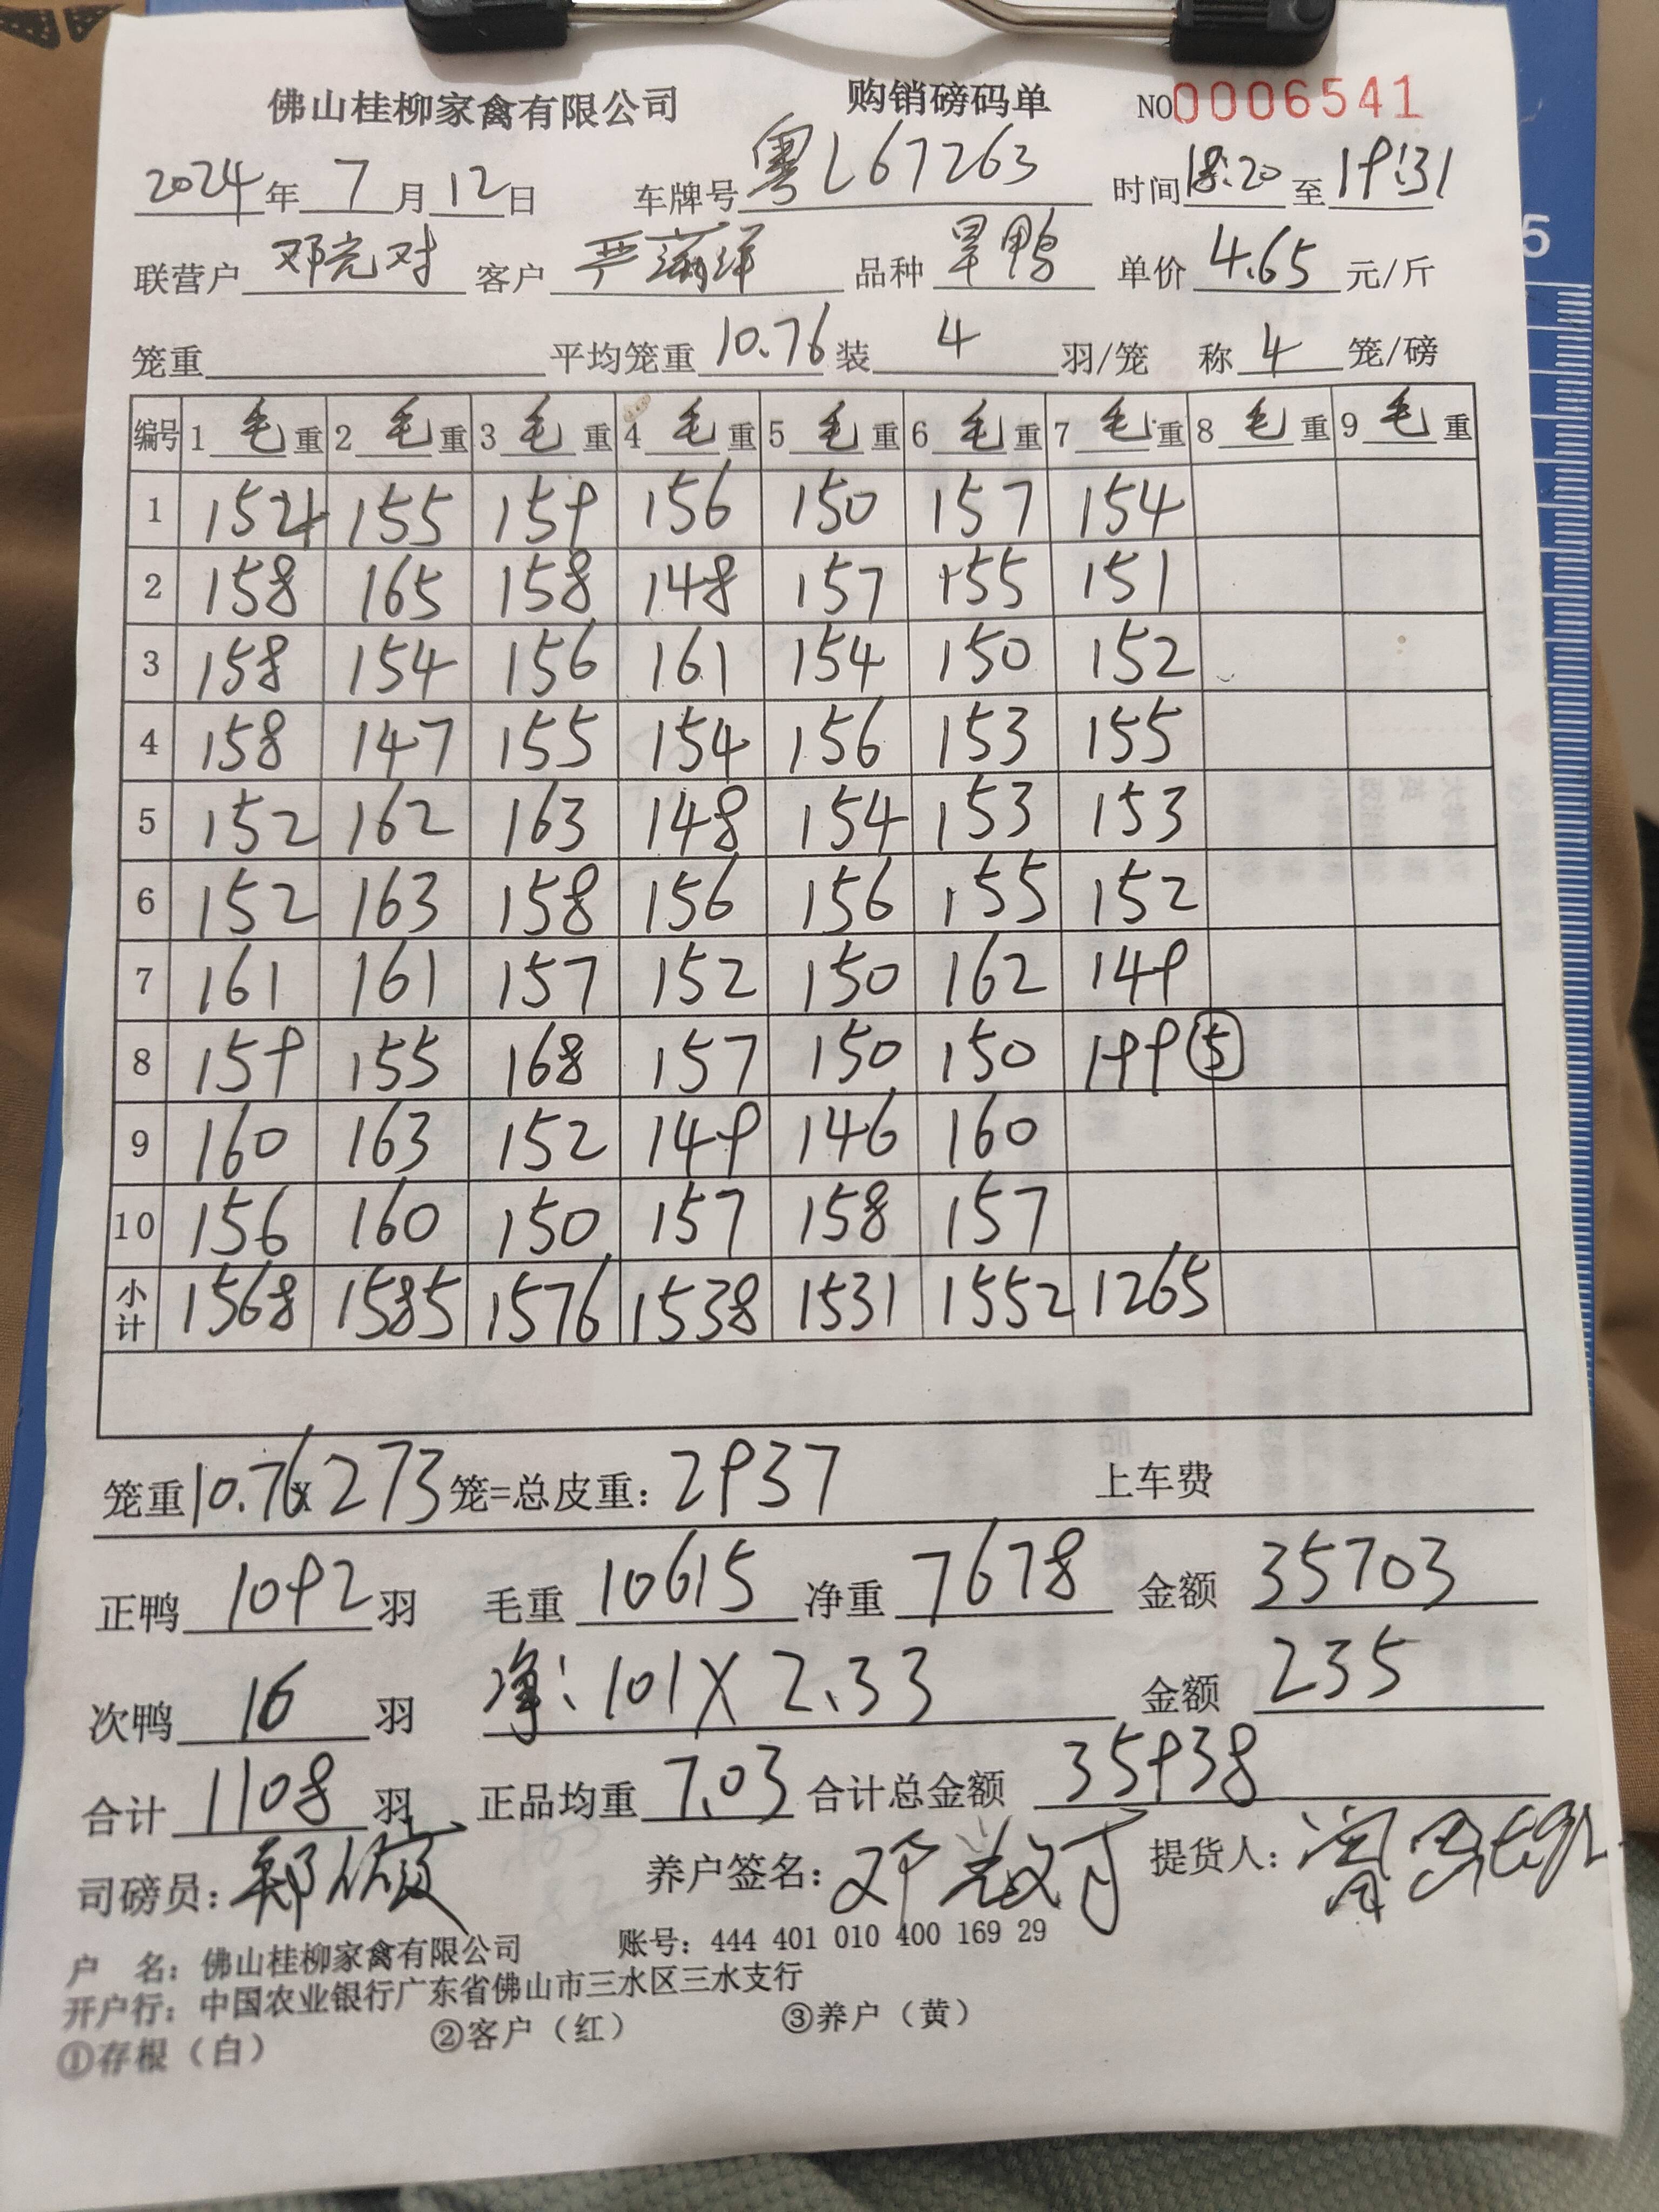 佛山桂柳家禽有限公司 购销磅码单 NO0006541
2024年7月12日 车牌号粤L67263 时间18:20至19:31
联营户邓亮对 客户严 品种旱鸭 单价4.65元/斤
笼重 平均笼重10.76装4羽/笼 称4笼/磅
编号 1毛重 2毛重 3毛重 4毛重 5毛重 6毛重 7毛重 8毛重 9毛重
1 154 155 159 156 150 157 154
2 158 165 158 148 157 155 151
3 158 154 156 161 154 150 152
4 158 147 155 154 156 153 155
5 152 162 163 148 154 153 153
6 152 163 158 156 156 155 152
7 161 161 157 152 150 162 149
8 159 155 168 157 150 150 199⑤
9 160 163 152 149 146 160
10 156 160 150 157 158 157
小计 1568 1585 1576 1538 1531 1552 1265
笼重10.76x273笼=总皮重:2937 上车费
正鸭1092羽 毛重10615净重7678 金额35703
次鸭16羽 净:101X2.33 金额235
合计1108羽 正品均重7.03合计总金额35938
司磅员:郑 养户签名:邓 提货人:
户 名:佛山桂柳家禽有限公司 账号:444 401 010 400 169 29
开户行:中国农业银行广东省佛山市三水区三水支行
①存根(白) ②客户(红) ③养户(黄)
5